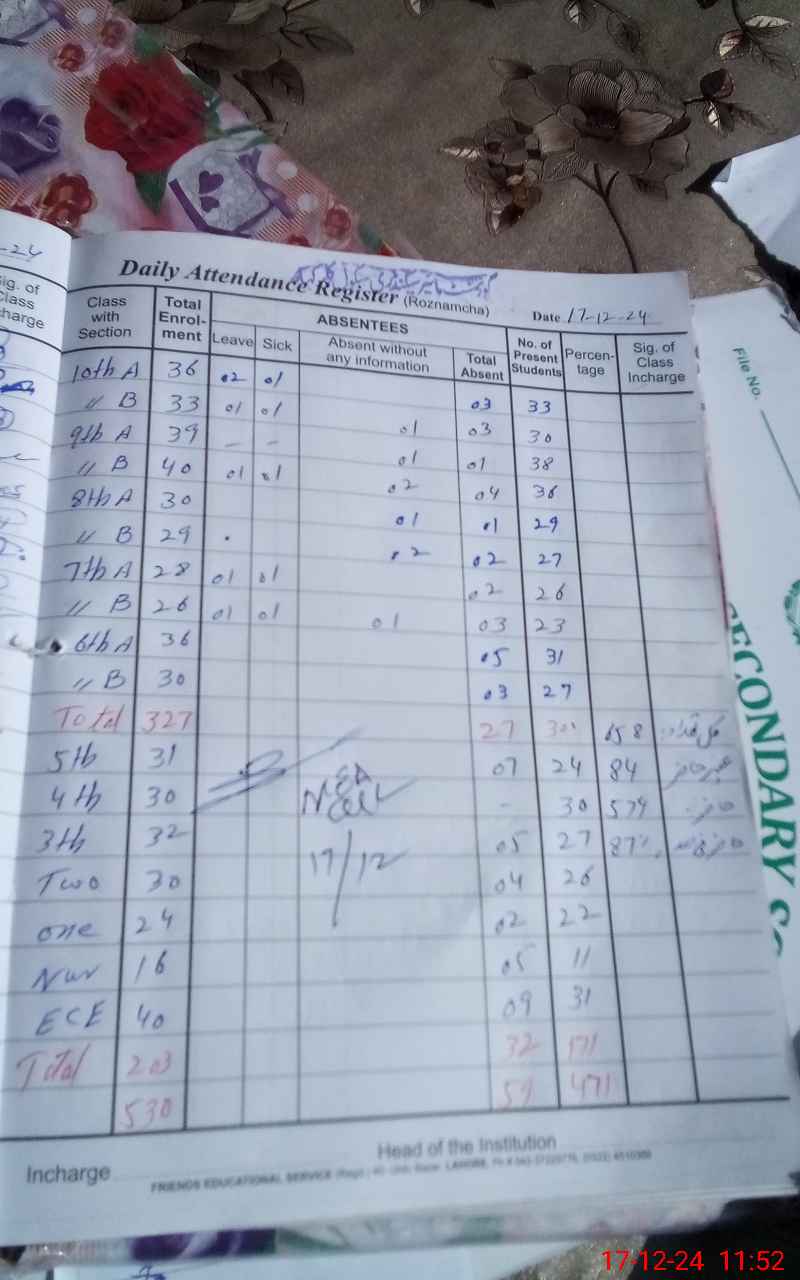 -24
Sig. of
Class
charge
Daily Attendance Register (Roznamcha)
Date 17-12-24
Class with Section | Total Enrol-ment | ABSENTEES | No. of Present Students | Percen-tage | Sig. of Class Incharge
Leave | Sick | Absent without any information | Total Absent
10th A 36 02 01
" B 33 01 01 03 33
9th A 39 – – 01 03 30
" B 40 01 01 01 01 38
8th A 30 02 04 36
" B 29 . 01 01 29
7th A 28 01 01 02 02 27
" B 26 01 01 02 26
6th A 36 01 03 23
" B 30 05 31
03 27
Total 327 27 300 658
5th 31 07 24 84
4th 30 - 30 574
3th 32 05 27 87%
Two 30 04 26
one 24 02 22
Nur 16 05 11
ECE 40 09 31
Total 203 32 171
530 59 471
MEA
17/12
Incharge
Head of the Institution
FRIENDS EDUCATIONAL SERVICE
File No.
ECONDARY
17-12-24 11:52